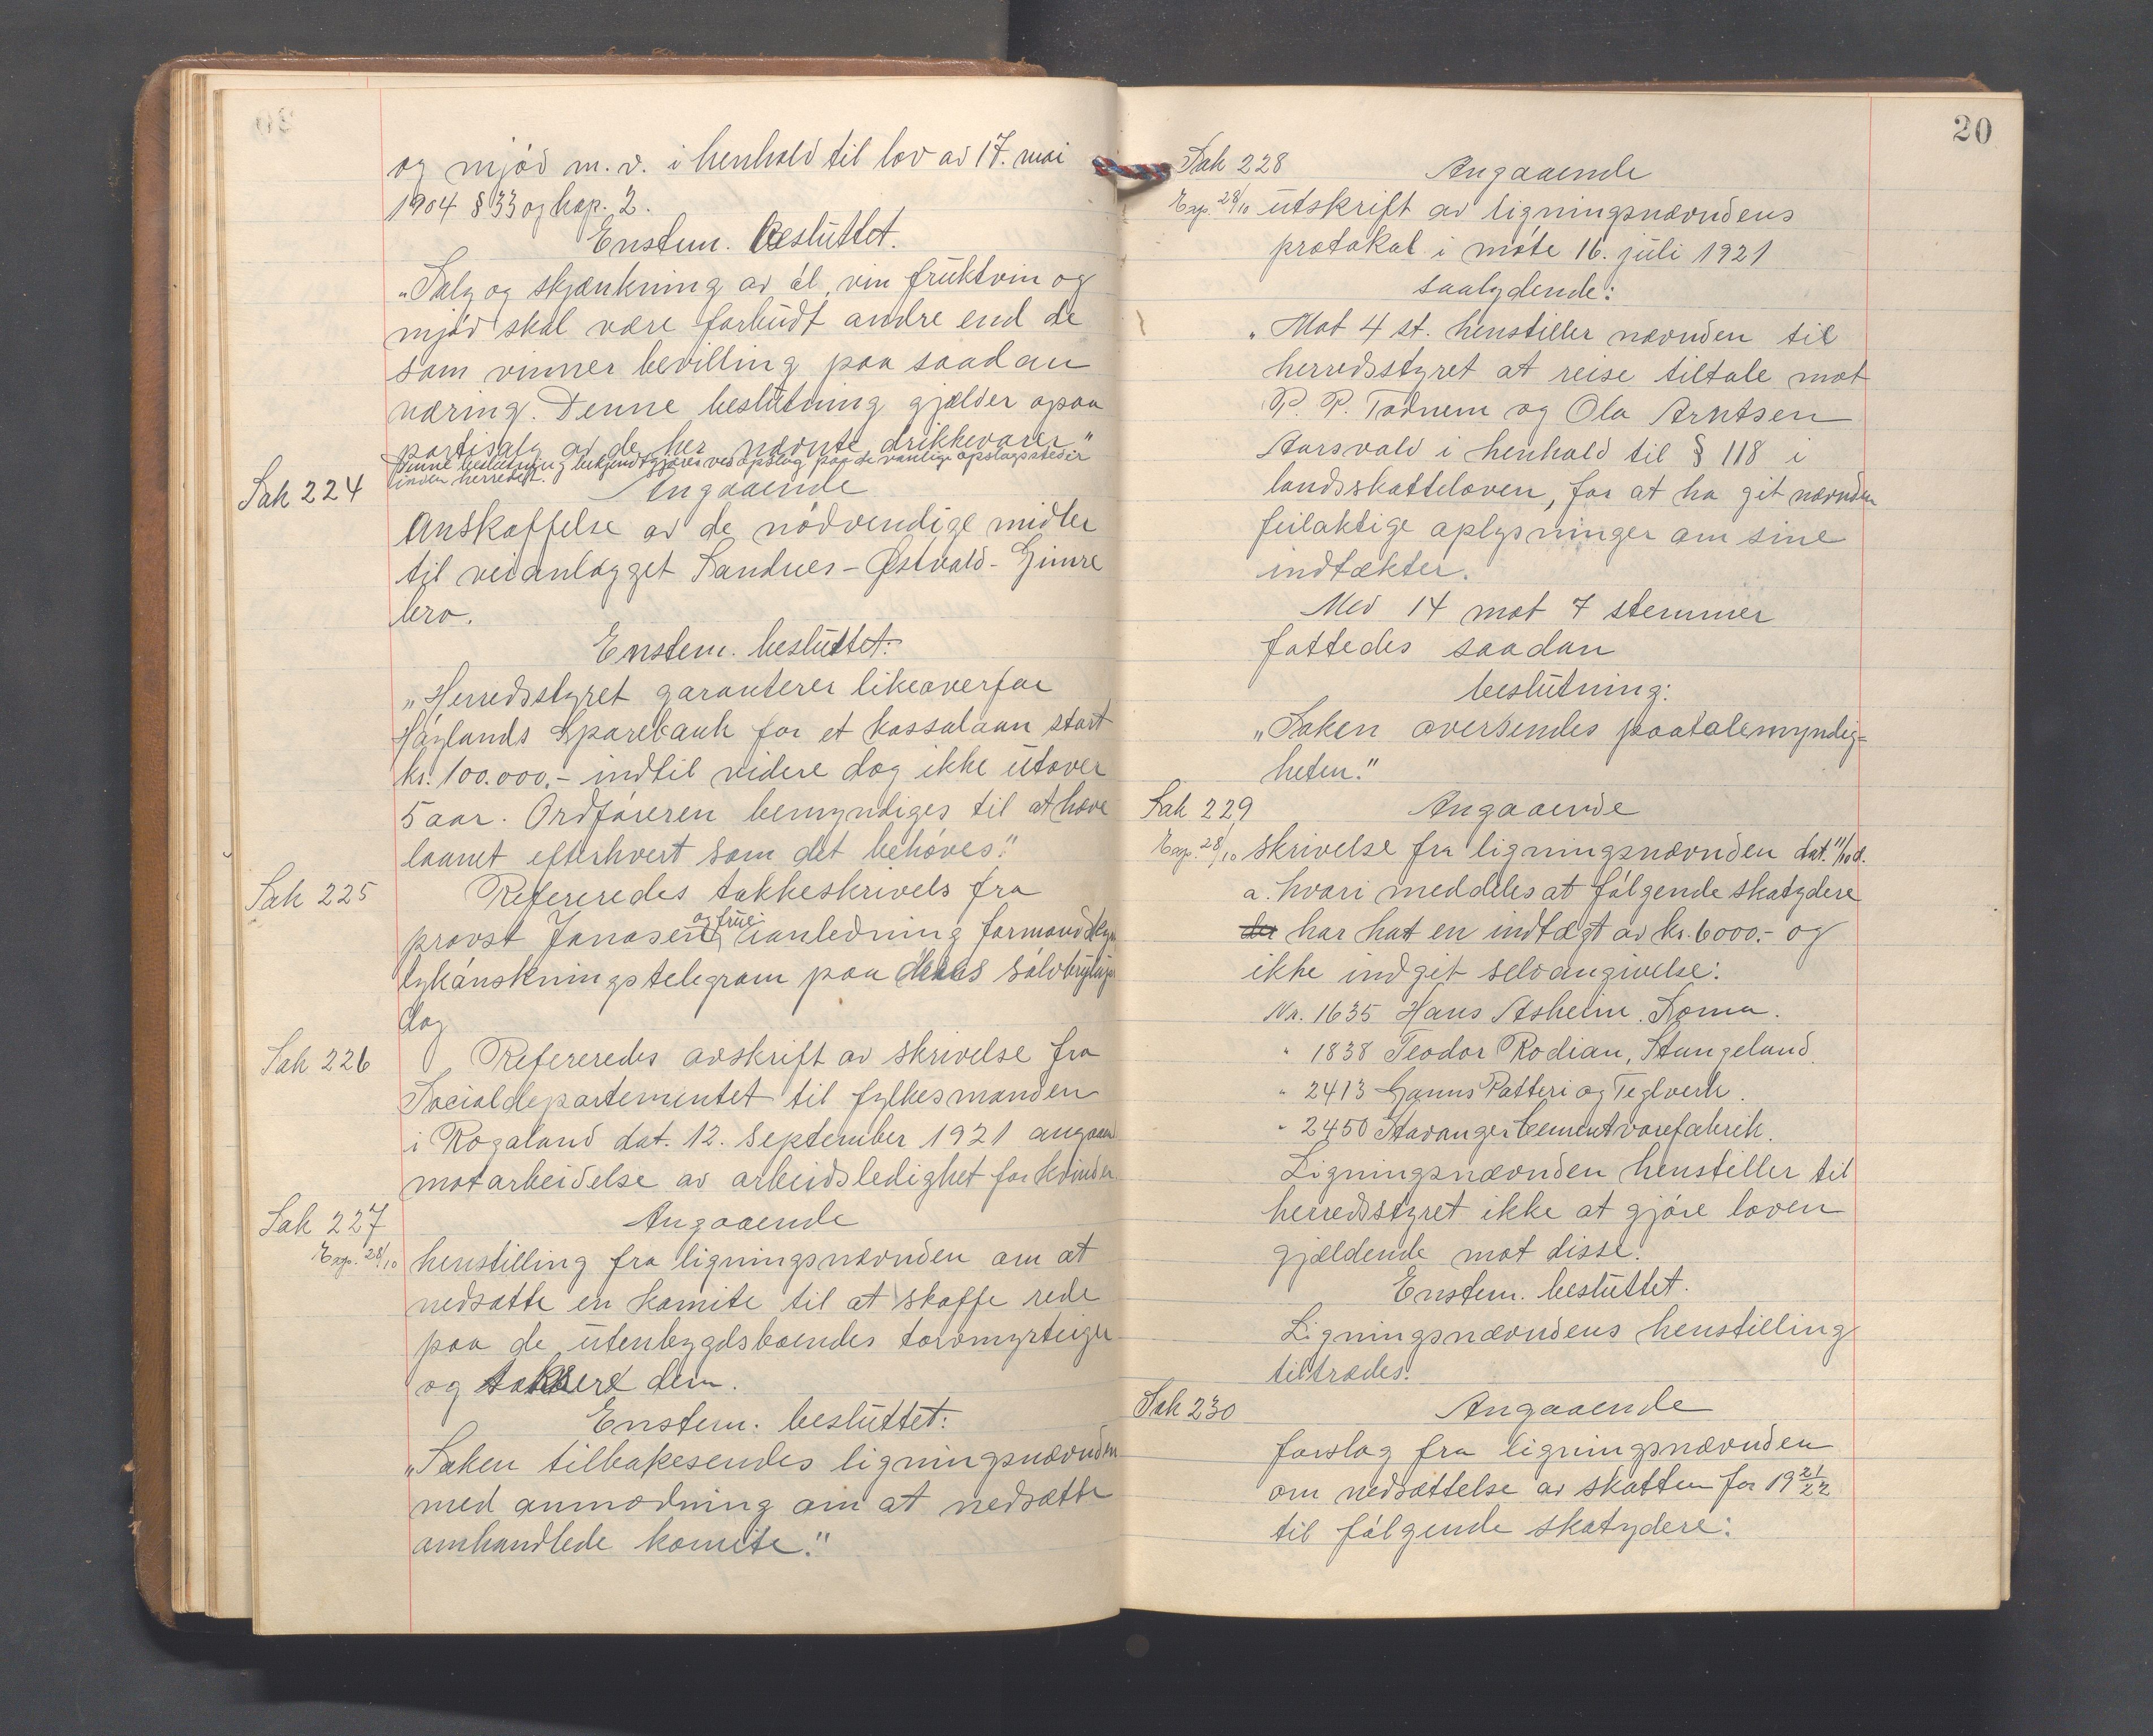 og mjød m. v. i henhold til lov av 17. mai
1904 § 33 og kap. 2.
Enstem. Besluttet.
„Salg og skjænkning av øl, vin fruktvin og
mjød skal være forbudt andre end de
som vinner bevilling paa saadan
næring. Denne beslutning gjælder opaa
partisalg av de her nævnte drikkevarer"
Denne beslutning bekjendtgjøres ved opslag paa de vanlige opslagssteder
inden herredet.
Sak 224
Angaaende
Anskaffelse av de nødvendige midler
til veianlægget Sandnes – Østvald – Gimre
bro.
Enstem. besluttet:
„Herredsstyret garanterer likeoverfor
Høylands Sparebank for et kassalaan stort
kr. 100.000.– indtil videre dog ikke utover
5 aar. Ordføreren bemyndiges til at hæve
laanet efterhvert som det behøves."
Sak 225
Refereredes takkeskrivels fra
provst Jonasen og frue i anledning formandsk
lykønskningstelegram paa deres sølvbryllups
dag
Sak 226
Refereredes avskrift av skrivelse fra
Socialdepartementet til fylkesmanden
i Rogaland dat. 12. september 1921 angaaen
motarbeidelse av arbeidsledighet for kvinder
Sak 227
Angaaende
Exp. 28/10 henstilling fra ligningsnævnden om at
nedsætte en komite til at skaffe rede
paa de utenbygdsboendes torvmyrteiger
og taksere dem.
Enstem. besluttet:
„Saken tilbakesendes ligningsnævnden
med anmodning om at nedsætte
omhandlede komite."
20
Sak 228
Angaaende
Exp. 28/10 utskrift av ligningsnævndens
protokol i møte 16. juli 1921
saalydende:
„Mot 4 st. henstiller nævnden til
herredsstyret at reise tiltale mot
P. P. Todnem og Ola Arntsen
Aarsvold i henhold til § 118 i
landsskatteloven, for at ha git nævnden
feilaktige oplysninger om sine
indtækter.
Med 14 mot 7 stemmer
fattedes saadan
beslutning:
„Saken oversendes paatalemyndig=
heten."
Sak 229
Angaaende
Exp. 28/10 skrivelse fra ligningsnævnden dat. 11/10 d.
a. hvori meddeles at følgende skatydere
der har hat en indtægt av kr. 6000.- og
ikke indgit selvangivelse:
Nr. 1635 Hans Asheim. Soma.
" 1838 Teodor Rodian, Stangeland.
" 2413 Ganns Potteri og Teglverk.
" 2450 Stavanger Cementvarefabrik.
Ligningsnævnden henstiller til
herredsstyret ikke at gjøre loven
gjældende mot disse.
Enstem. besluttet.
Ligningsnævndens henstilling
tiltrædes.
Sak 230
Angaaende
forslag fra ligningsnævnden
om nedsættelse av skatten for 19 21/22
til følgende skatydere: